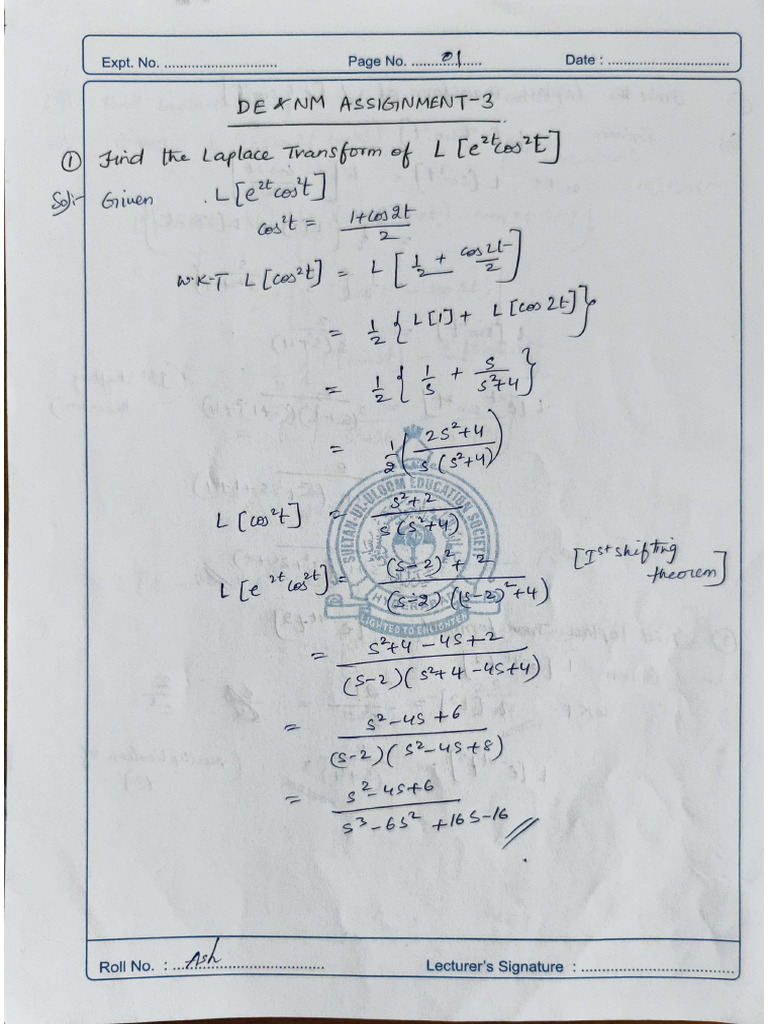 Expt. No. ............................ Page No. ...01...... Date : ..............................
DE & NM ASSIGNMENT-3
① Find the Laplace Transform of L[e^{2t}cos²t]
Sol:- Given L[e^{2t}cos²t]
cos²t = (1+cos2t)/2
W.K.T L[cos²t] = L[1/2 + cos2t/2]
= 1/2 {L[1] + L[cos2t]}
= 1/2 {1/s + s/(s²+4)}
= 1/2 ((2s²+4)/(s(s²+4)))
L[cos²t] = (s²+2)/(s(s²+4))
L[e^{2t}cos²t] = ((s-2)²+2)/((s-2)((s-2)²+4)) [Ist shifting theorem]
= (s²+4-4s+2)/((s-2)(s²+4-4s+4))
= (s²-4s+6)/((s-2)(s²-4s+8))
= (s²-4s+6)/(s³-6s²+16s-16) //
SULTAN-UL-ULOOM EDUCATION SOCIETY
LIGHTED TO ENLIGHTEN
Roll No. : ...Ash............... Lecturer's Signature : ...............................